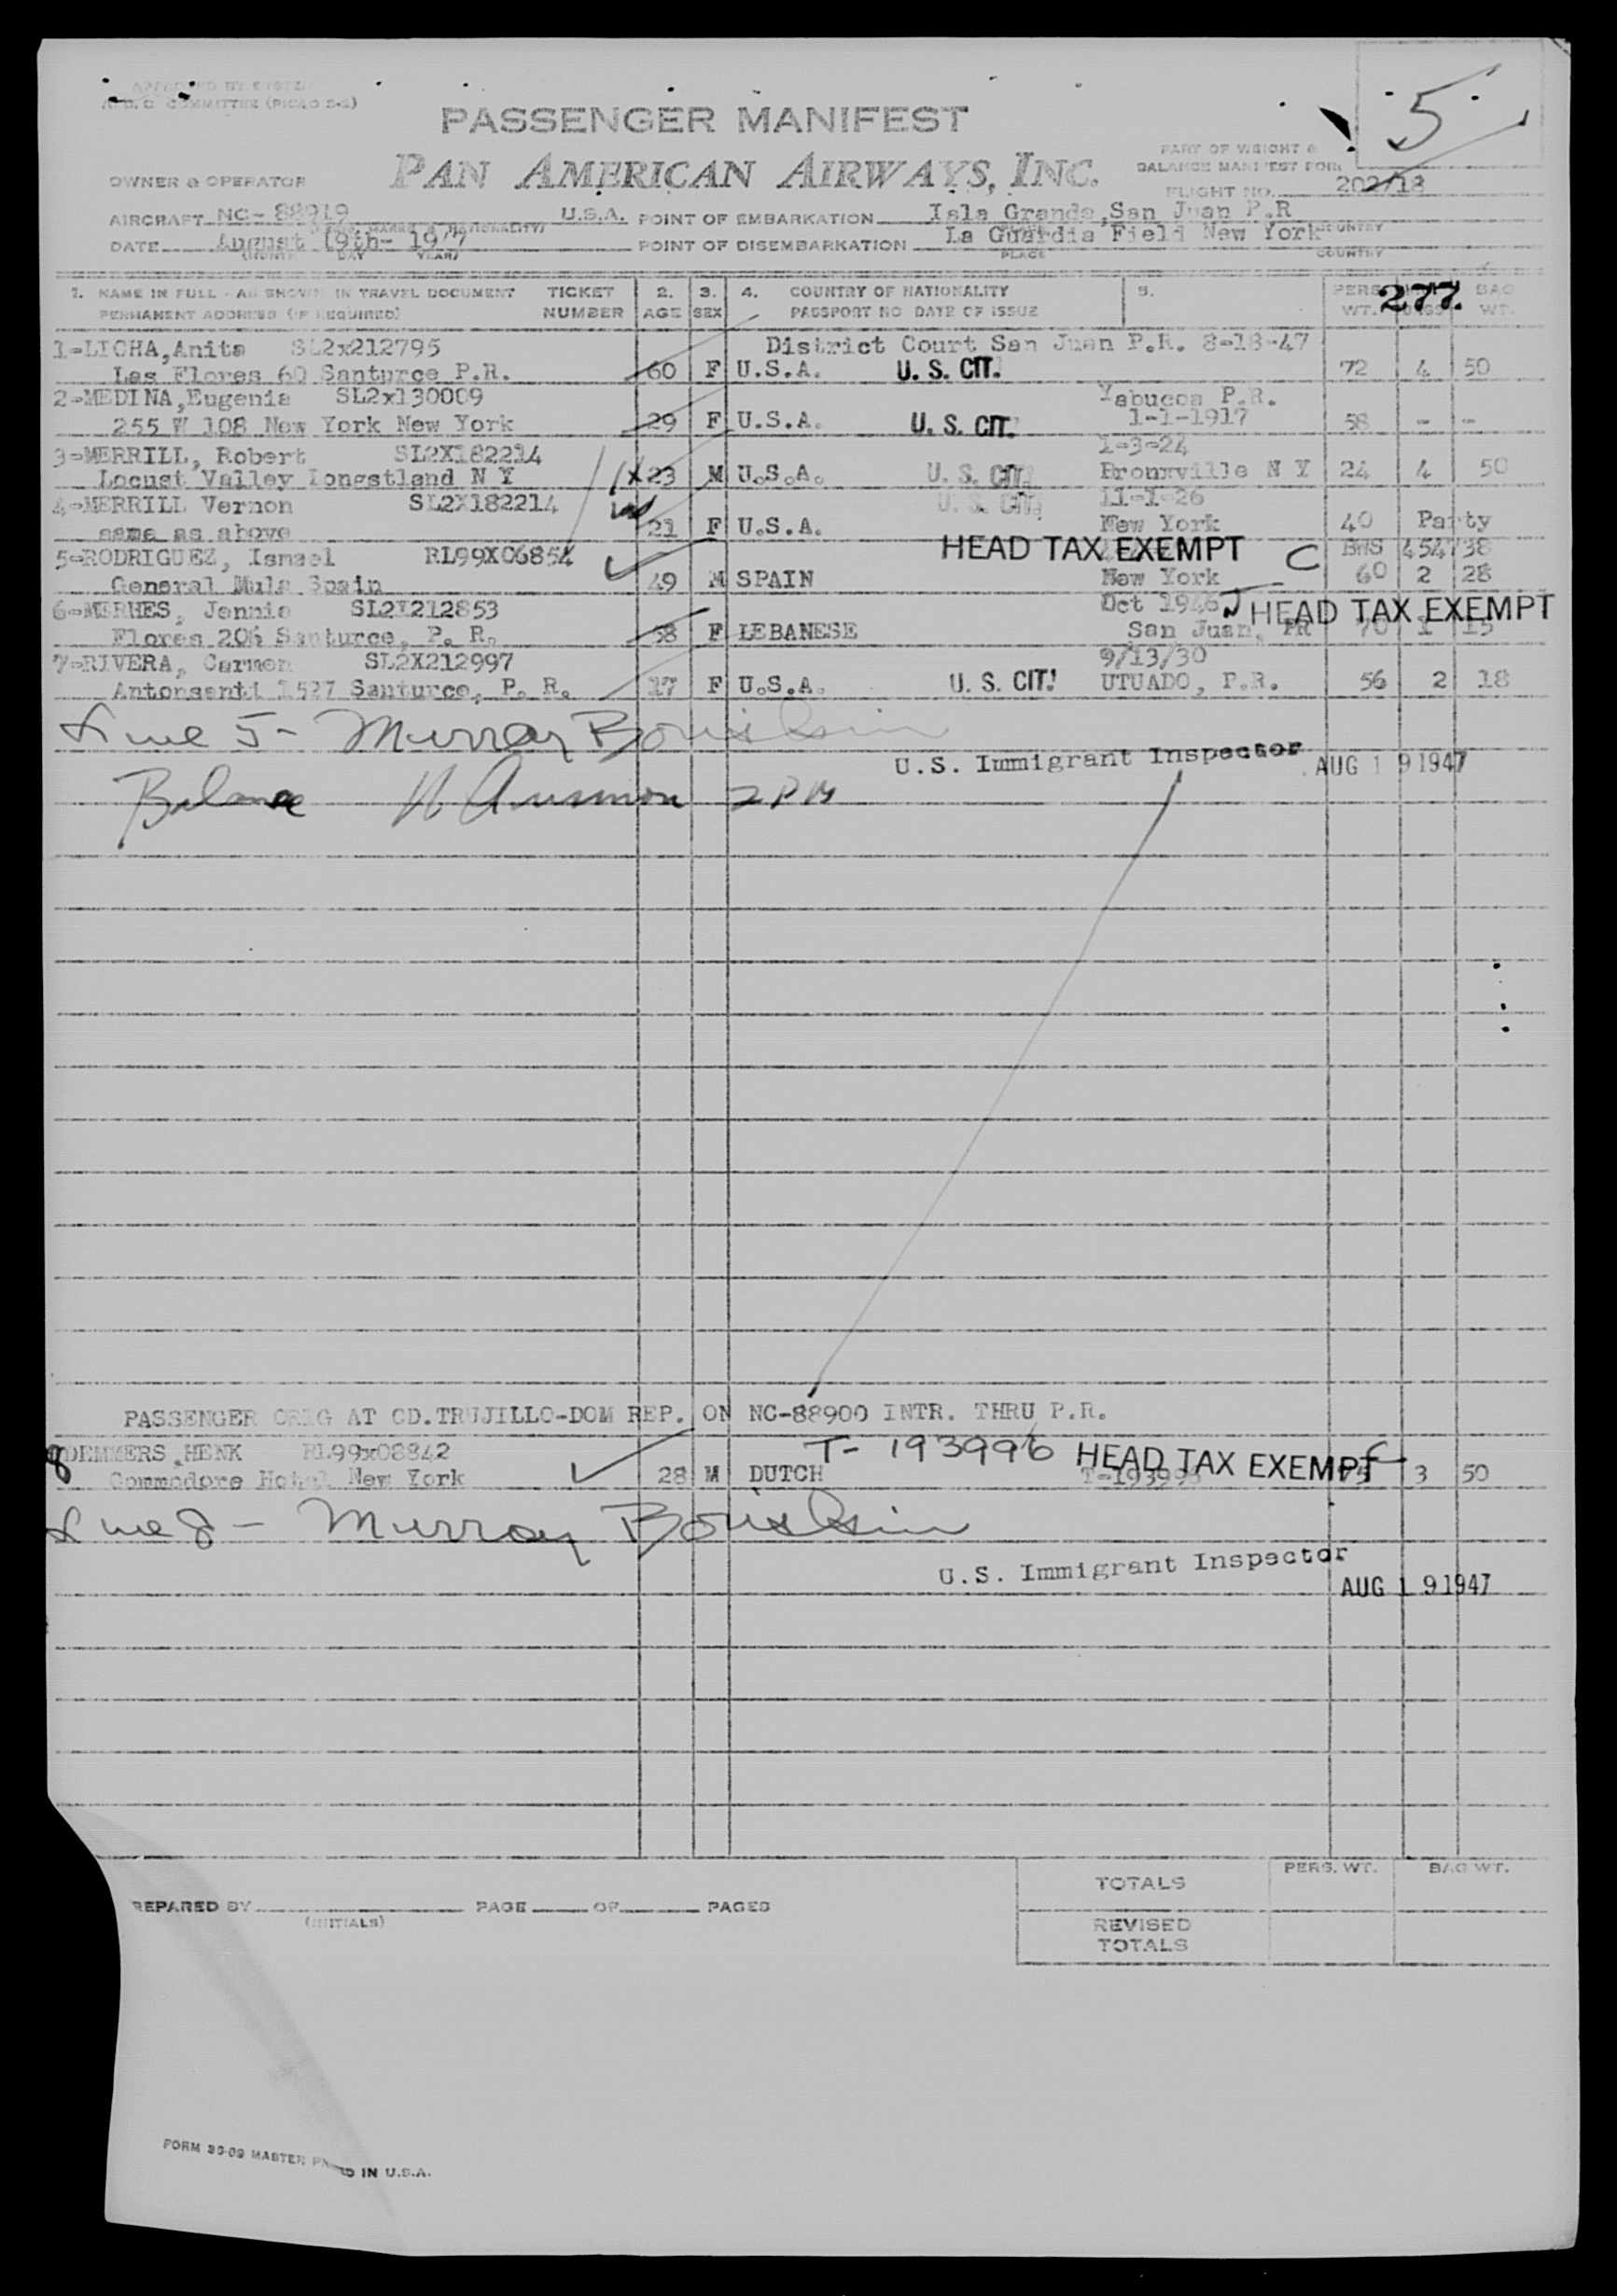 APPROVED BY SYSTEM
A.D.C. COMMITTEE (PICAO 2-2)
5
PASSENGER MANIFEST
PART OF WEIGHT &
BALANCE MANIFEST FOR
OWNER & OPERATOR PAN AMERICAN AIRWAYS, INC.
FLIGHT NO. 202/18
AIRCRAFT NC-88919 U.S.A. POINT OF EMBARKATION Isla Grande,San Juan P.R
DATE August 19th- 1947 POINT OF DISEMBARKATION La Guardia Field New York COUNTRY
(MONTH DAY YEAR) PLACE COUNTRY
1. NAME IN FULL - AS SHOWN IN TRAVEL DOCUMENT TICKET 2. 3. 4. COUNTRY OF NATIONALITY 5. PERS. 277. BAG
PERMANENT ADDRESS (IF REQUIRED) NUMBER AGE SEX PASSPORT NO DATE OF ISSUE WT. WT.
1-LICHA,Anita SL2x212795 District Court San Juan P.R. 8-18-47
Las Flores 60 Santurce P.R. 60 F U.S.A. U. S. CIT. 72 4 50
2-MEDINA,Eugenia SL2x130009 Yabucoa P.R.
255 W 108 New York New York 29 F U.S.A. U. S. CIT. 1-1-1917 58 - -
3-MERRILL, Robert SL2X182214 1-3-24
Locust Valley Longstland N Y 23 M U.S.A. U. S. CIT. Bronxville N Y 24 4 50
4-MERRILL Vernon SL2X182214 U. S. CIT. 11-1-26
same as above 21 F U.S.A. New York 40 Party
5-RODRIGUEZ, Ismael RL99X06854 HEAD TAX EXEMPT C BWS 454738
General Mula Spain 49 M SPAIN New York 60 2 28
6-MERHES, Jennie SL2X212853 Oct 1946 HEAD TAX EXEMPT
Flores 206 Santurce, P. R. 58 F LEBANESE San Juan, PR 70 1 15
7-RIVERA, Carmen SL2X212997 9/13/30
Antonsanti 1527 Santurce, P. R. 17 F U.S.A. U. S. CIT. UTUADO, P.R. 56 2 18
Line 5- Murray
U.S. Immigrant Inspector AUG 19 1947
Balance 2 PM
PASSENGER ORIG AT CD.TRUJILLO-DOM REP. ON NC-88900 INTR. THRU P.R.
8 DEMMERS,HENK RL99x08842 T- 193996 HEAD TAX EXEMPT C
Commodore Hotel New York 28 M DUTCH T-193996 75 3 50
Line 8 - Murray
U.S. Immigrant Inspector
AUG 19 1947
TOTALS PERS. WT. BAG WT.
REPARED BY PAGE OF PAGES
(INITIALS)
REVISED
TOTALS
FORM 30-09 MASTER IN U.S.A.